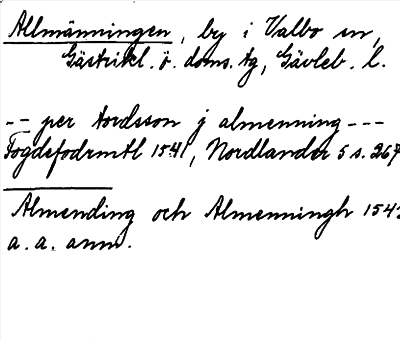 Allmänningen, by i Valbo sn,
Gästrikl. ö. doms. tg, Gävleb. l.
-- per tordsson j almenning ---
Fogdefodrmtl 1541, Nordlander 5 s. 267
Almending och Almenningh 1543
a. a. anm.